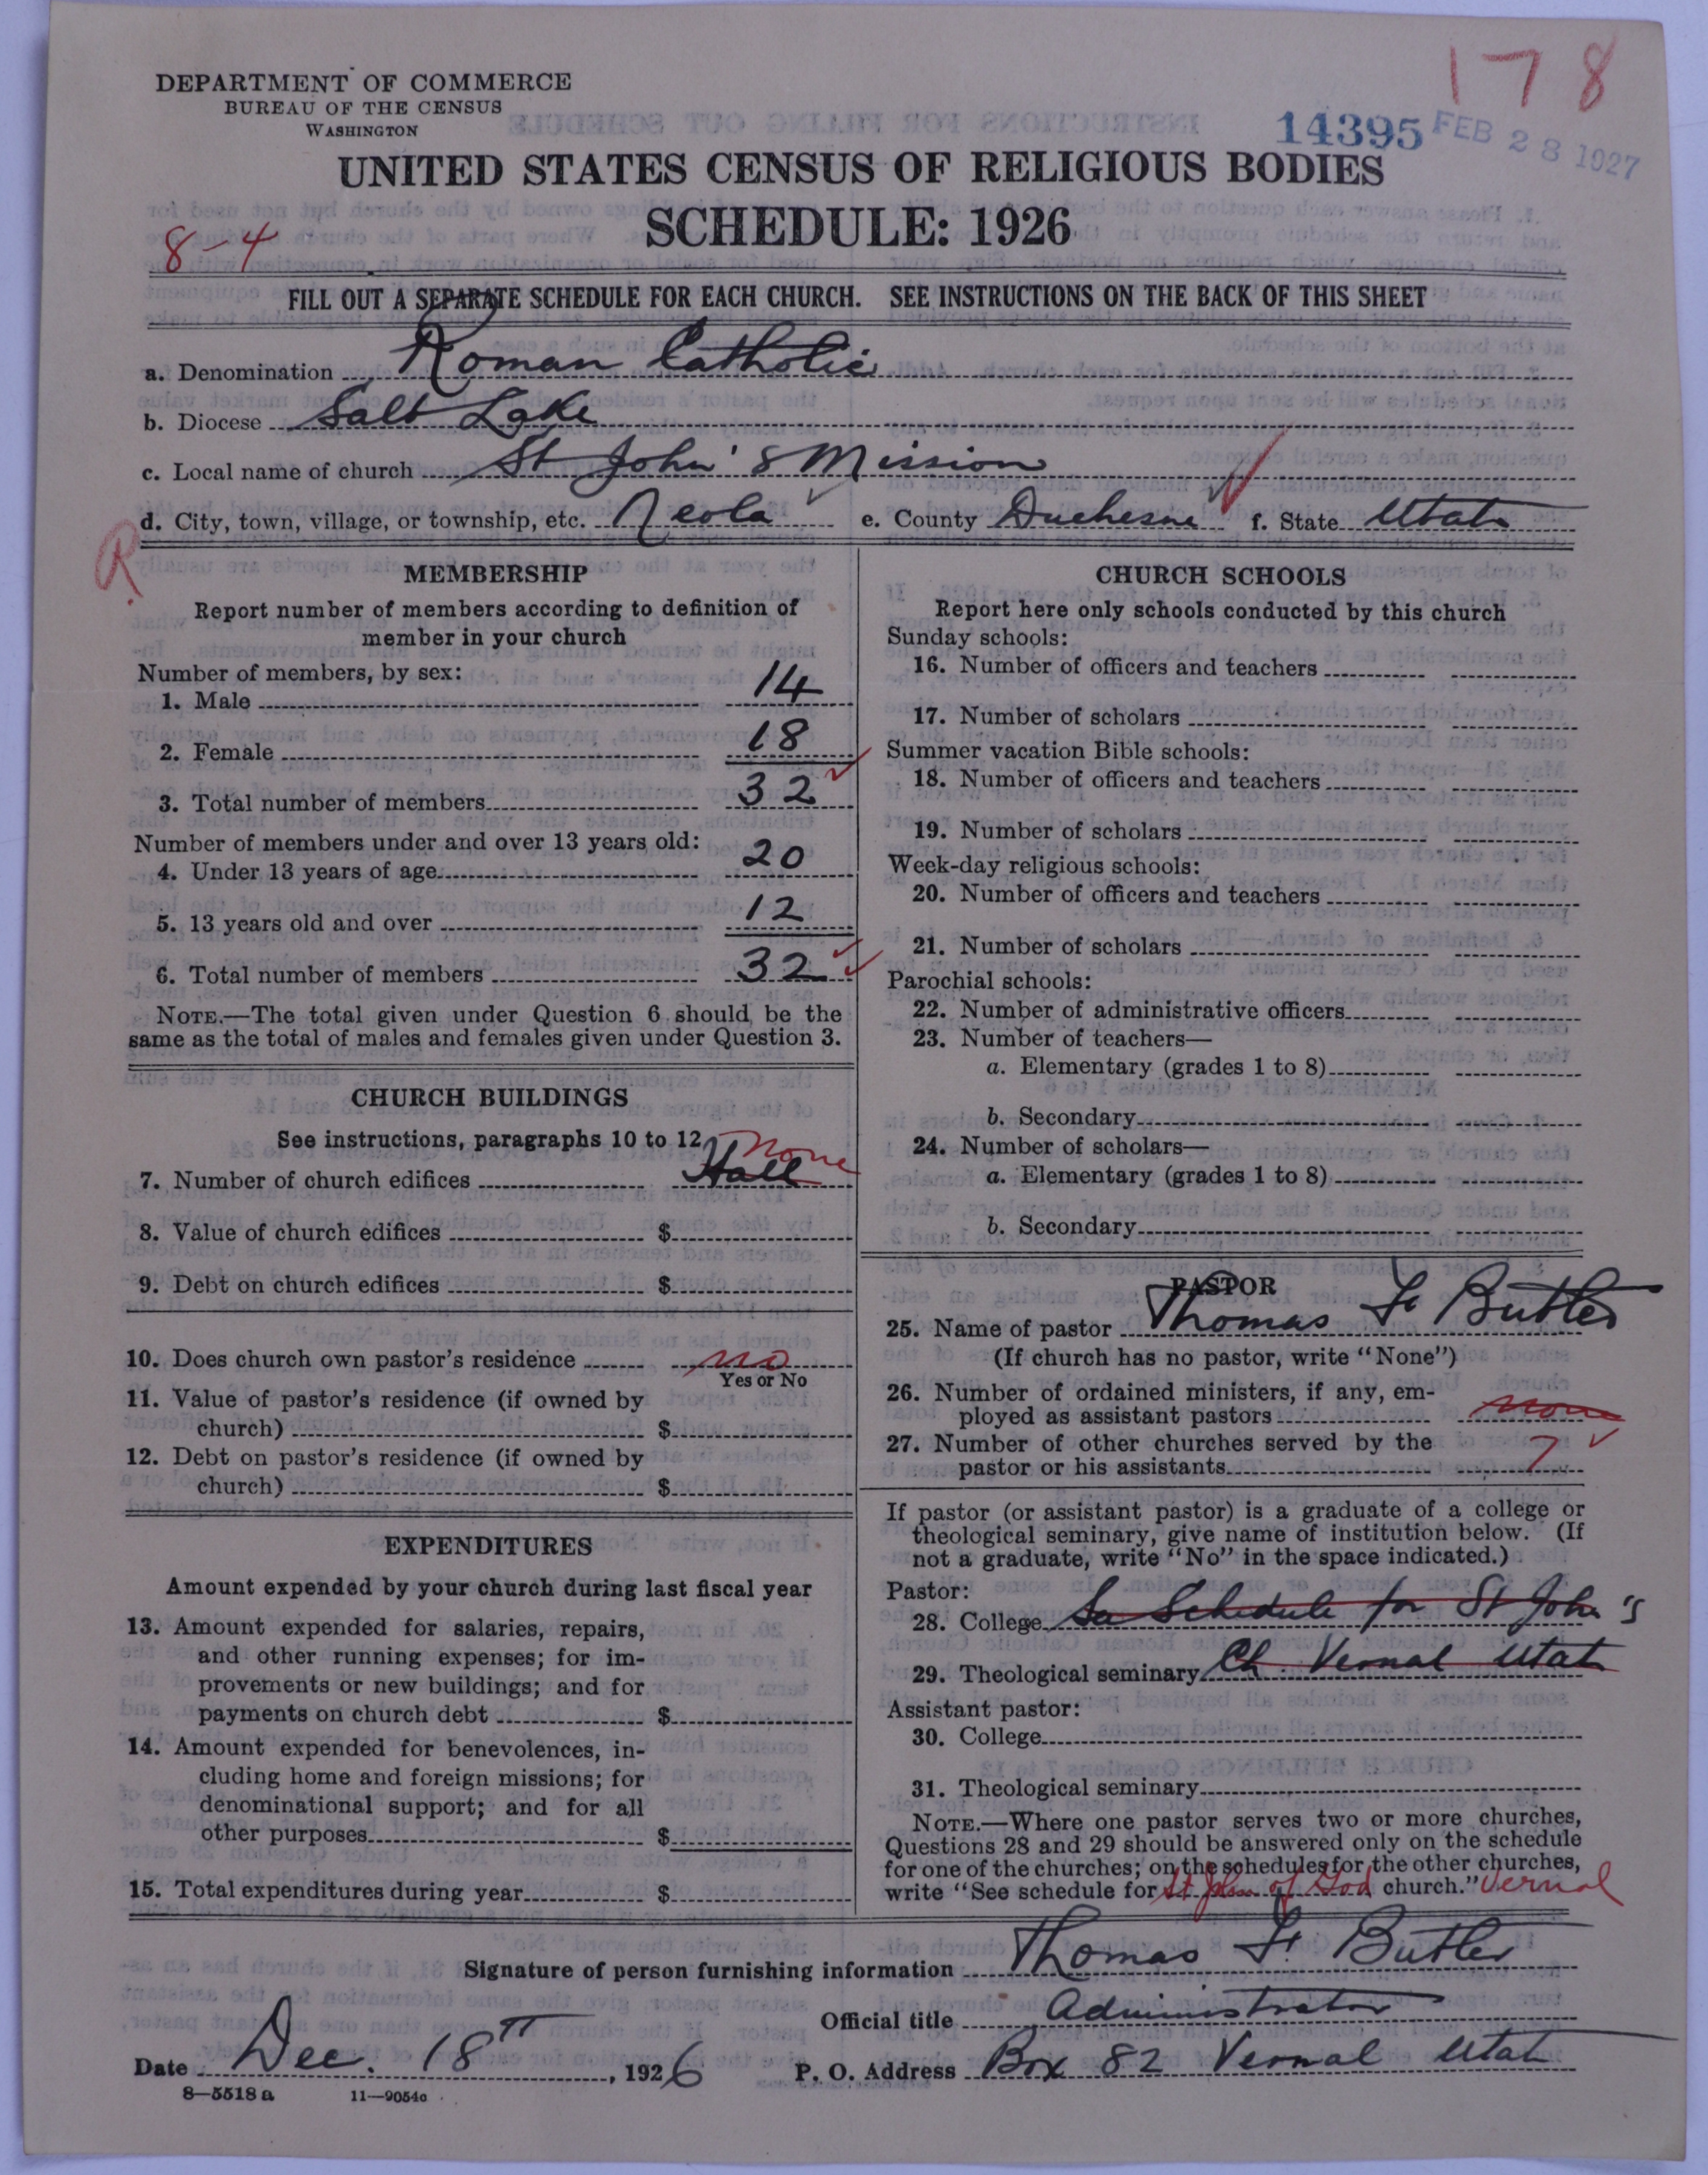 178
DEPARTMENT OF COMMERCE
BUREAU OF THE CENSUS
WASHINGTON
14395 FEB 28 1927
UNITED STATES CENSUS OF RELIGIOUS BODIES
SCHEDULE: 1926
8-4
FILL OUT A SEPARATE SCHEDULE FOR EACH CHURCH. SEE INSTRUCTIONS ON THE BACK OF THIS SHEET
a. Denomination Roman Catholic
b. Diocese Salt Lake
c. Local name of church St John's Mission
d. City, town, village, or township, etc. Neola e. County Duchesne f. State Utah
R
MEMBERSHIP
Report number of members according to definition of
member in your church
Number of members, by sex:
1. Male 14
2. Female 18
3. Total number of members 32
Number of members under and over 13 years old:
4. Under 13 years of age 20
5. 13 years old and over 12
6. Total number of members 32
NOTE.—The total given under Question 6 should be the
same as the total of males and females given under Question 3.
CHURCH BUILDINGS
See instructions, paragraphs 10 to 12
7. Number of church edifices Hall none
8. Value of church edifices $
9. Debt on church edifices $
10. Does church own pastor's residence no
Yes or No
11. Value of pastor's residence (if owned by
church) $
12. Debt on pastor's residence (if owned by
church) $
EXPENDITURES
Amount expended by your church during last fiscal year
13. Amount expended for salaries, repairs,
and other running expenses; for im-
provements or new buildings; and for
payments on church debt $
14. Amount expended for benevolences, in-
cluding home and foreign missions; for
denominational support; and for all
other purposes $
15. Total expenditures during year $
CHURCH SCHOOLS
Report here only schools conducted by this church
Sunday schools:
16. Number of officers and teachers
17. Number of scholars
Summer vacation Bible schools:
18. Number of officers and teachers
19. Number of scholars
Week-day religious schools:
20. Number of officers and teachers
21. Number of scholars
Parochial schools:
22. Number of administrative officers
23. Number of teachers—
a. Elementary (grades 1 to 8)
b. Secondary
24. Number of scholars—
a. Elementary (grades 1 to 8)
b. Secondary
PASTOR
25. Name of pastor Thomas F. Butler
(If church has no pastor, write "None")
26. Number of ordained ministers, if any, em-
ployed as assistant pastors none
27. Number of other churches served by the
pastor or his assistants 7
If pastor (or assistant pastor) is a graduate of a college or
theological seminary, give name of institution below. (If
not a graduate, write "No" in the space indicated.)
Pastor:
28. College Se Schedule for St John's
29. Theological seminary Ch. Vernal Utah
Assistant pastor:
30. College
31. Theological seminary
NOTE.—Where one pastor serves two or more churches,
Questions 28 and 29 should be answered only on the schedule
for one of the churches; on the schedules for the other churches,
write "See schedule for St John of God church." Vernal
Signature of person furnishing information Thomas F. Butler
Official title Administrator
Date Dec. 18th, 1926 P. O. Address Box 82 Vernal Utah
8—5518 a 11—9054c